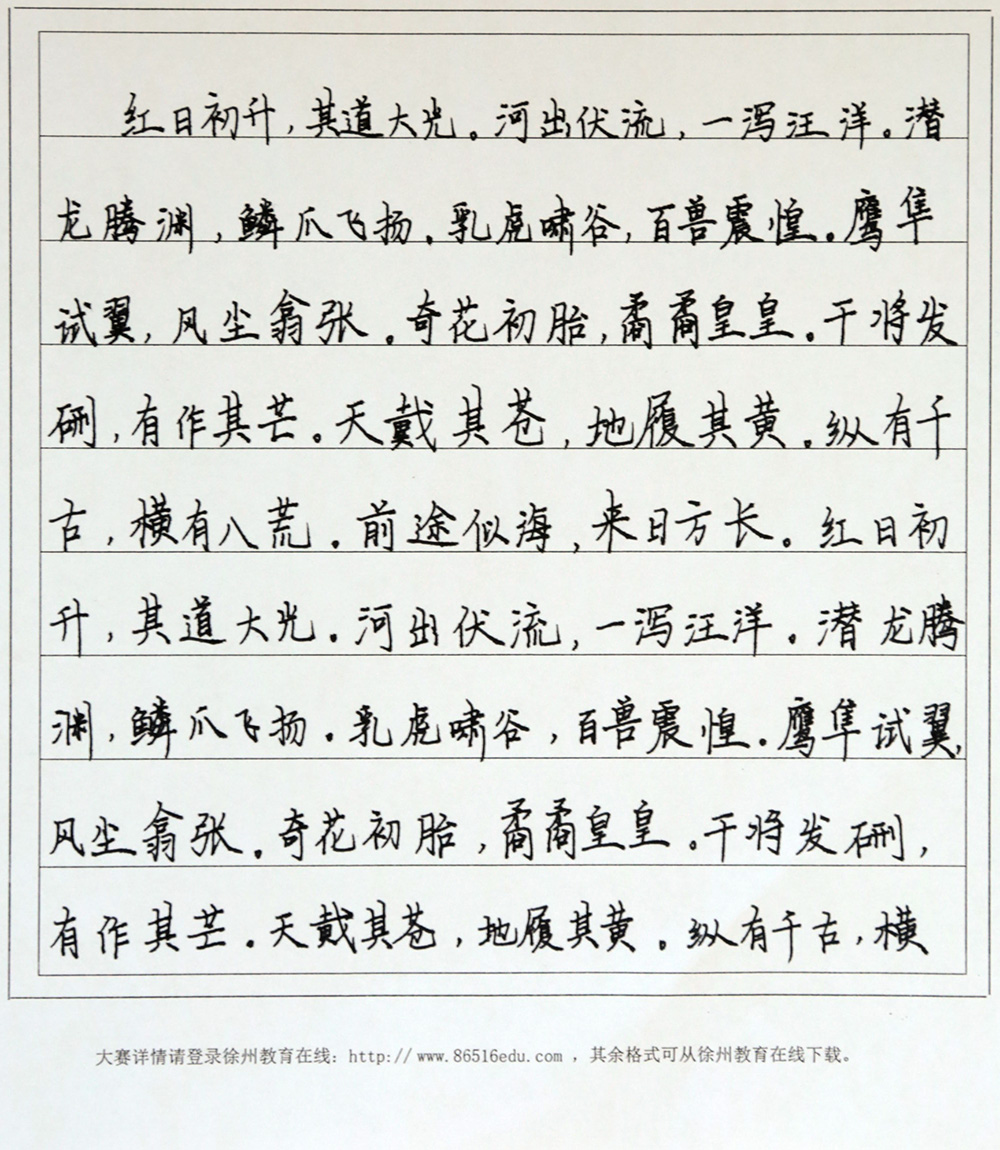 红日初升，其道大光。河出伏流，一泻汪洋。潜
龙腾渊，鳞爪飞扬。乳虎啸谷，百兽震惶。鹰隼
试翼，风尘翕张。奇花初胎，矞矞皇皇。干将发
硎，有作其芒。天戴其苍，地履其黄。纵有千
古，横有八荒。前途似海，来日方长。红日初
升，其道大光。河出伏流，一泻汪洋。潜龙腾
渊，鳞爪飞扬。乳虎啸谷，百兽震惶。鹰隼试翼，
风尘翕张。奇花初胎，矞矞皇皇。干将发硎，
有作其芒。天戴其苍，地履其黄。纵有千古，横
大赛详情请登录徐州教育在线：http://www.86516edu.com ，其余格式可从徐州教育在线下载。